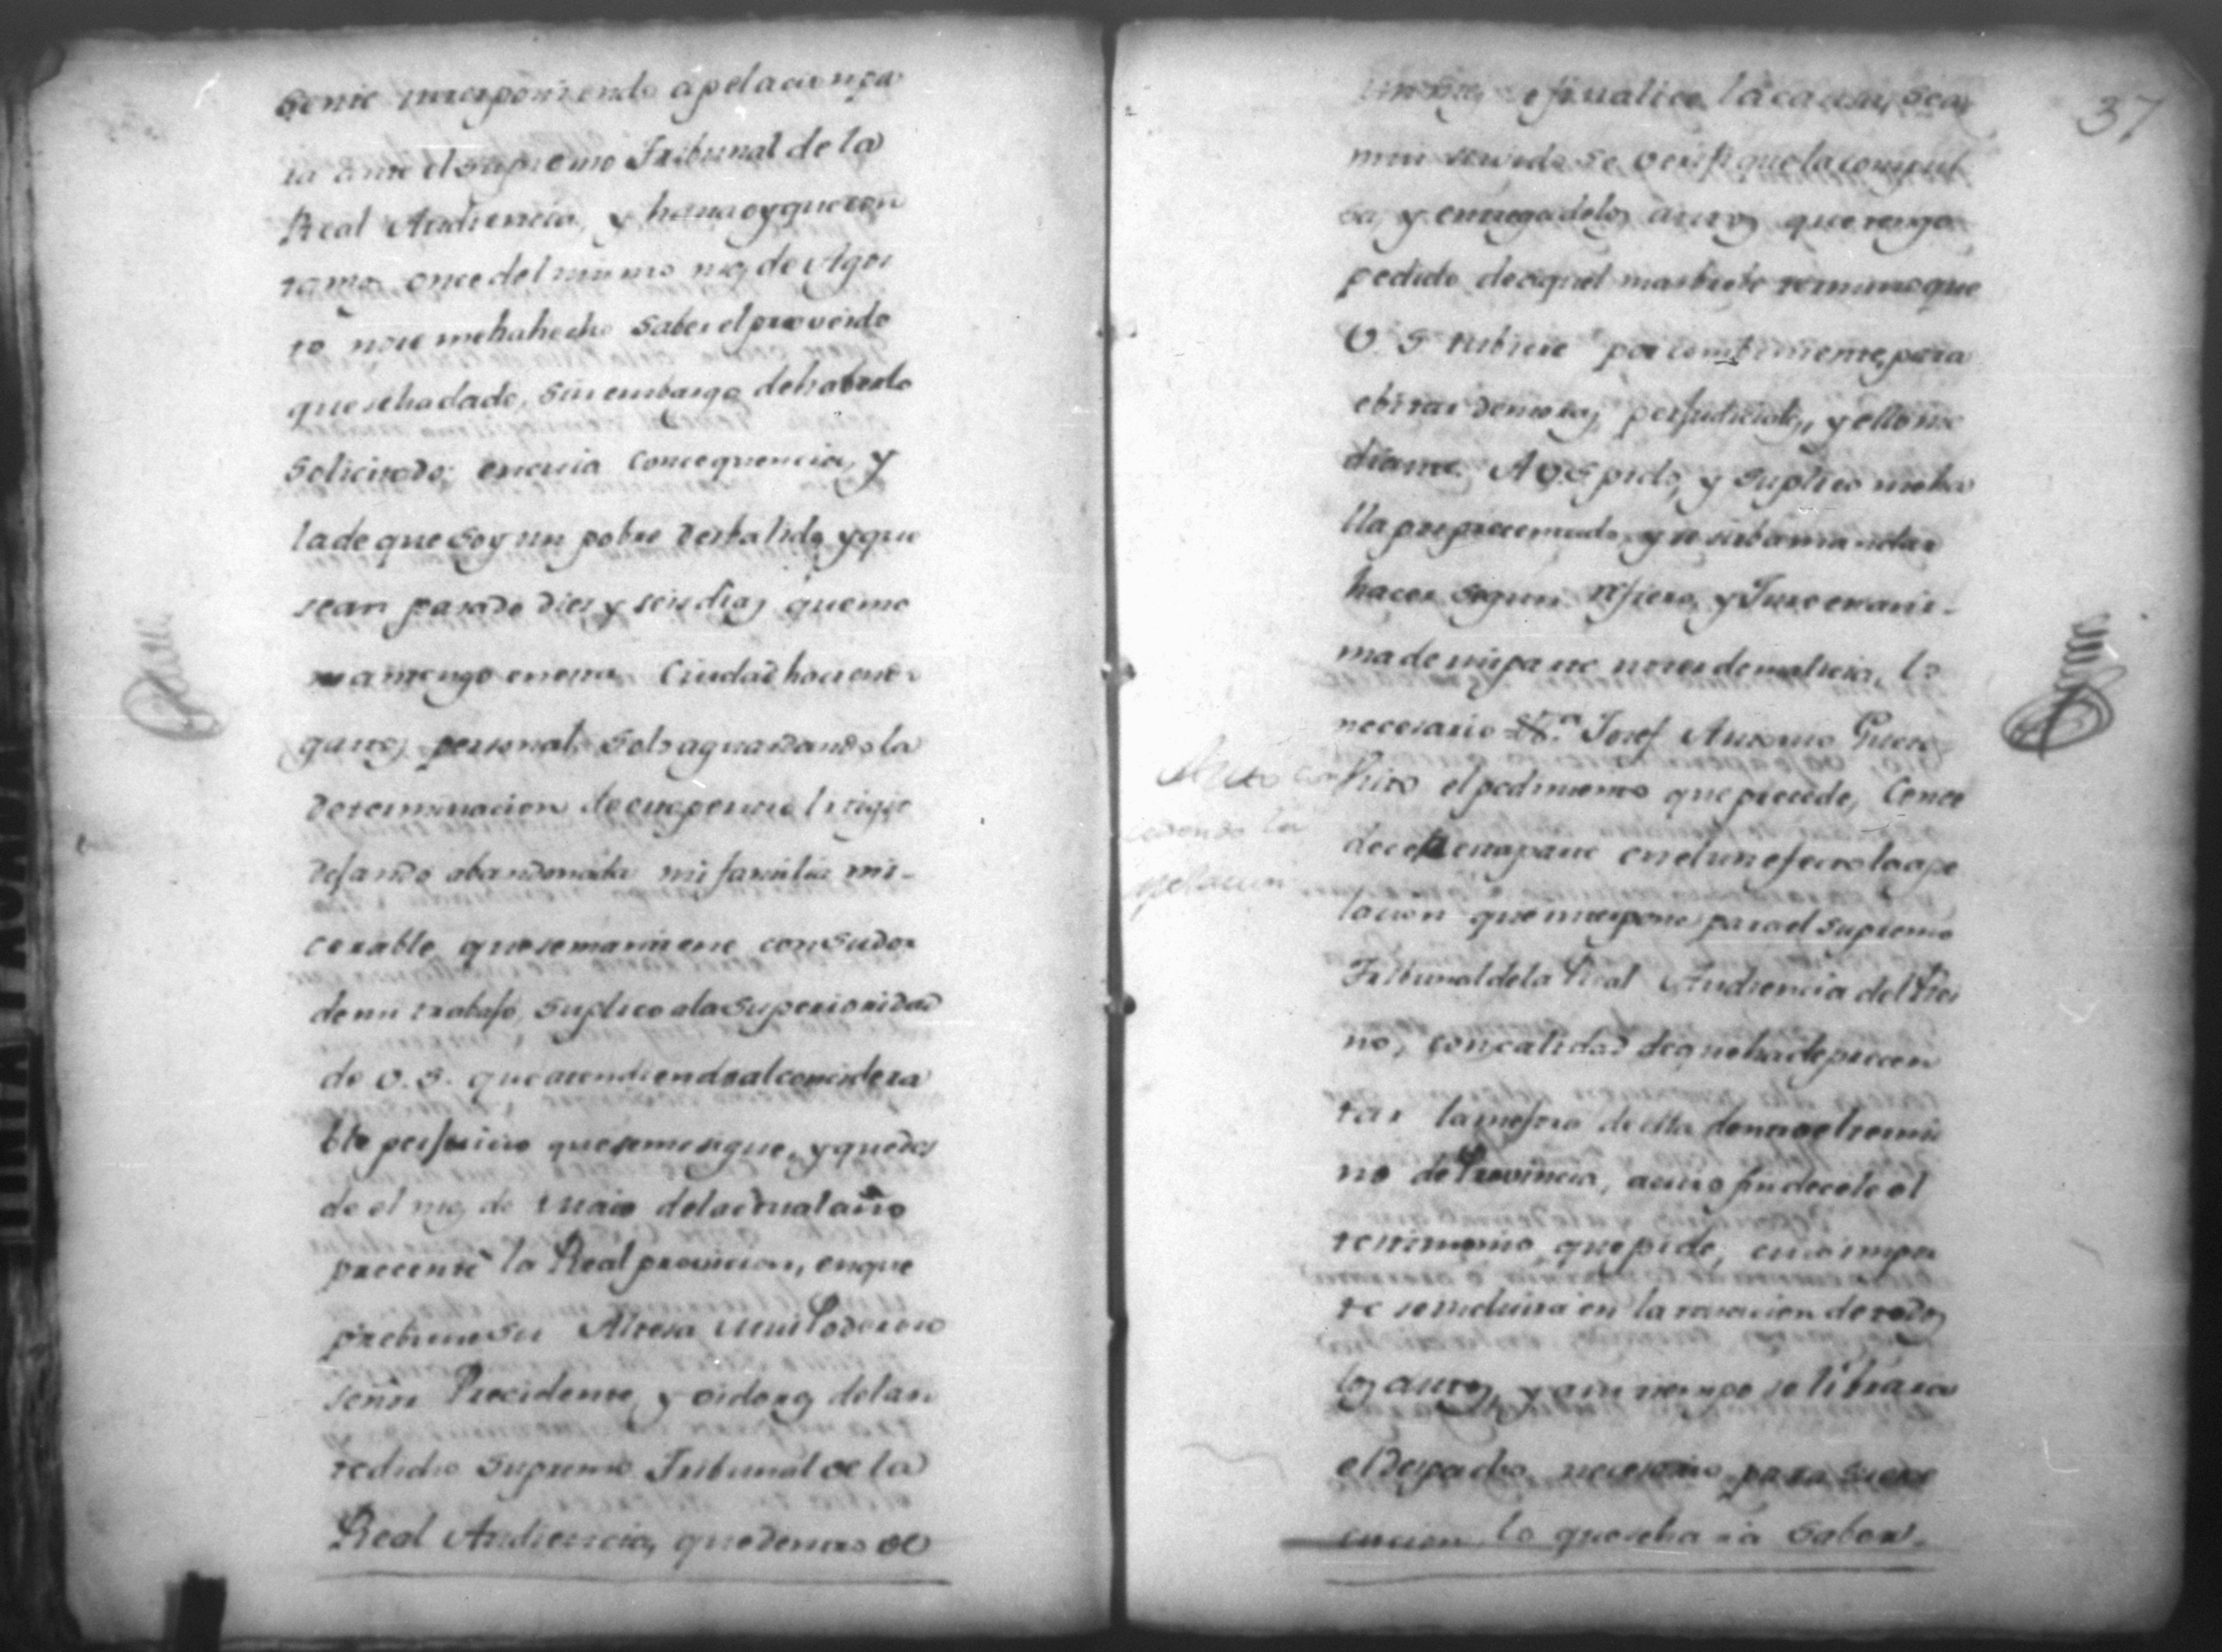 sente interponiendo apelacion pa
ra ante el supremo Tribunal de la
Real Audiencia, y hasta oy que con
tamos once del mismo mes de Agos
to no se me ha hecho saber el proveido
que se ha dado, sin embargo de haberlo
solicitado: en cuia concequencia, y
la de que soy un pobre desbalido, y que
sean pasado dies y seis dias que me
mantengo en esta Ciudad haciendo
gastos personales solo aguardando la
determinacion de este penoso litigio
dejando abandonada mi familia mi-
cerable que se mantiene con sudor
de mi trabajo, suplico ala superioridad
de V. S. que atendiendo al concidera
ble perjuicio que se me sigue, y que des
de el mes de Maio del actual año
precenté la Real provicion, en que
prebiene su Alteza Mui Poderoso
señor Precidente, y oidores del an
tedicho supremo Tribunal de la
Real Audiencia, que dentro de
se finalice la causa, sea
mui servido se verifique la compul
sa, y entrega delos autos que tengo
pedido de aquel mas brebe termino que
V. S. tubiere por combeniente, para
ebitar demoras perjudiciales, y ello me
diante. A V.S. pido, y suplico me ha
lla por precentado, y se sirba mandar
hacer segun refiero, y Juro en ani-
ma de mi parte no ser de malicia, lo
necesario &.ª Josef Antonio
Auto con
cediendo la
apelacion
Visto el pedimento que precede, Conce
decele a esta parte en el un efecto la ape
lacion que interpone para el supremo
Tribunal de la Real Audiencia del Rei
no, con calidad de que ha de precen
tar la mejora de ella dentro el termi
no de Provincia, a cuio fin decele el
testimonio que pide, cuio impor
te se incluira en la tasacion de todos
los autos, y a su tiempo se librara
el Despacho necesario para su exe
cucion lo que se hara saber.
37